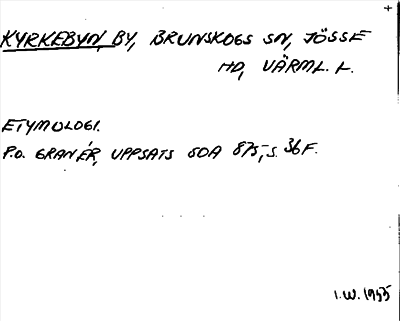 +
KYRKEBYN, BY, BRUNSKOGS SN, JÖSSE
HD, VÄRML. L.
ETYMOLOGI.
P.O. GRANÉR, UPPSATS SOA 875, S. 36 F.
I.W. 1955